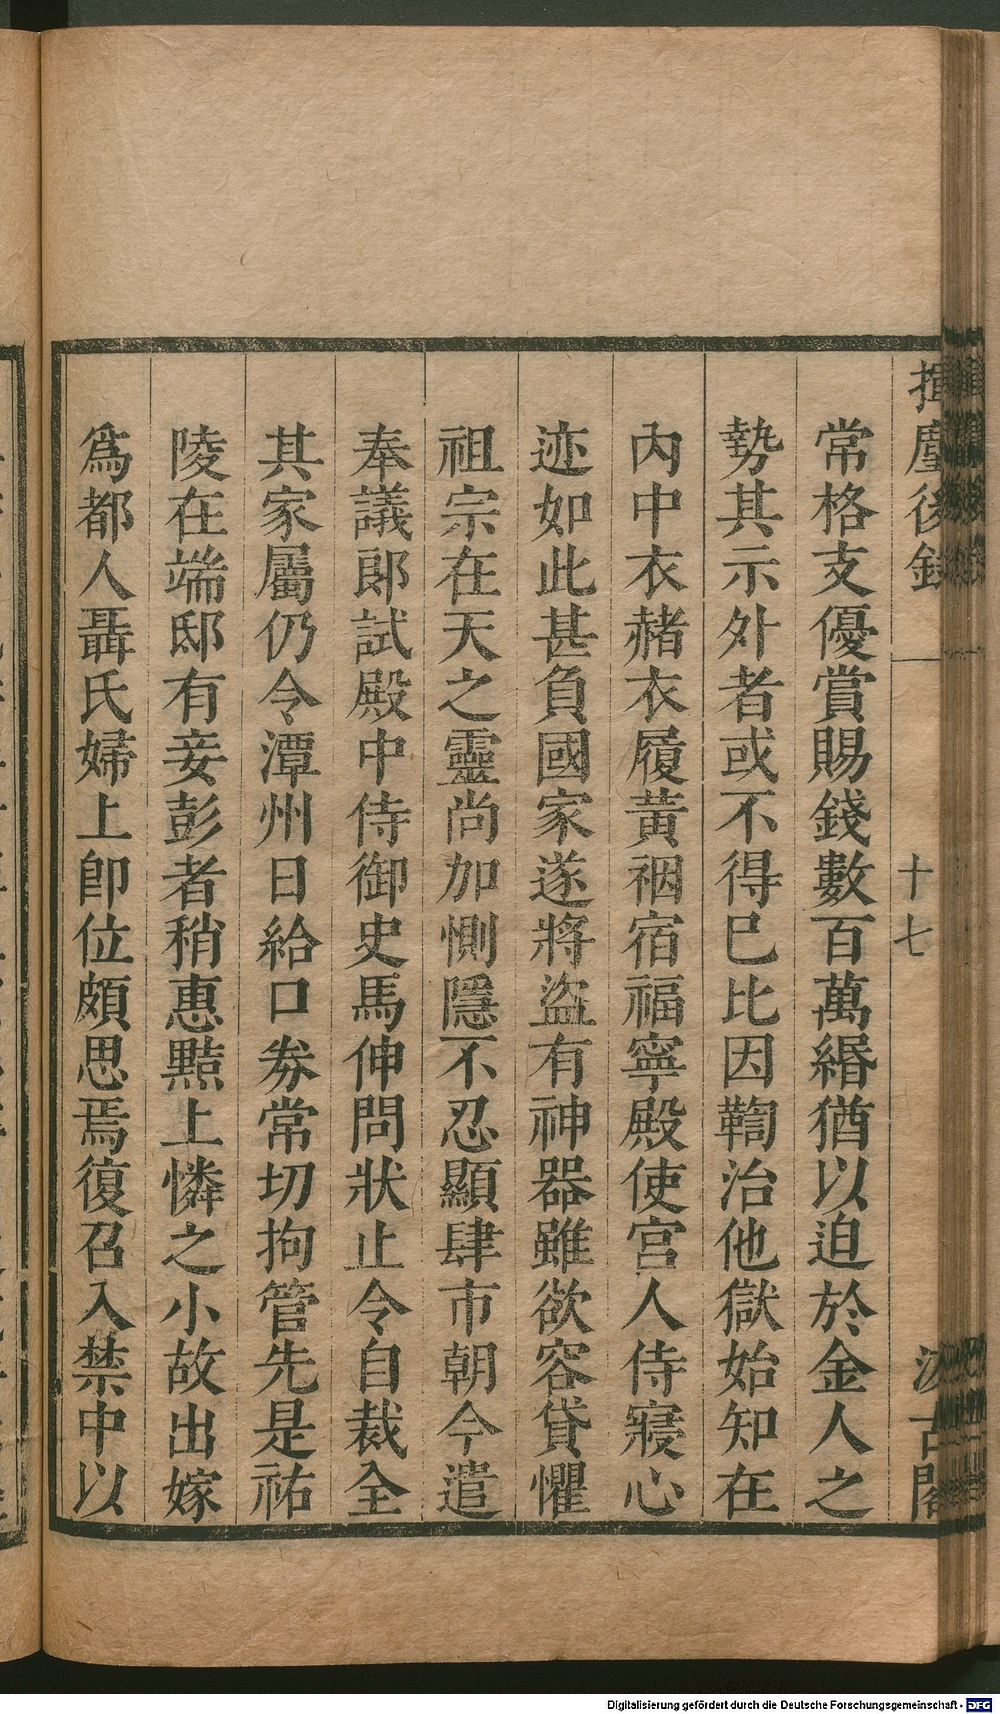 揮麈後錄
十七
汲古閣
常格支優賞賜錢數百萬緡猶以迫於金人之
勢其示外者或不得巳比因鞫治他獄始知在
內中衣赭衣履黃裀宿福寧殿使宮人侍寢心
迹如此甚負國家遂將盜有神器雖欲容貸懼
祖宗在天之靈尚加惻隱不忍顯肆市朝今遣
奉議郎試殿中侍御史馬伸問狀止令自裁全
其家屬仍令潭州日給口券常切拘管先是祐
陵在端邸有妾彭者稍惠黠上憐之小故出嫁
爲都人聶氏婦上卽位頗思焉復召入禁中以
Digitalisierung gefördert durch die Deutsche Forschungsgemeinschaft - DFG